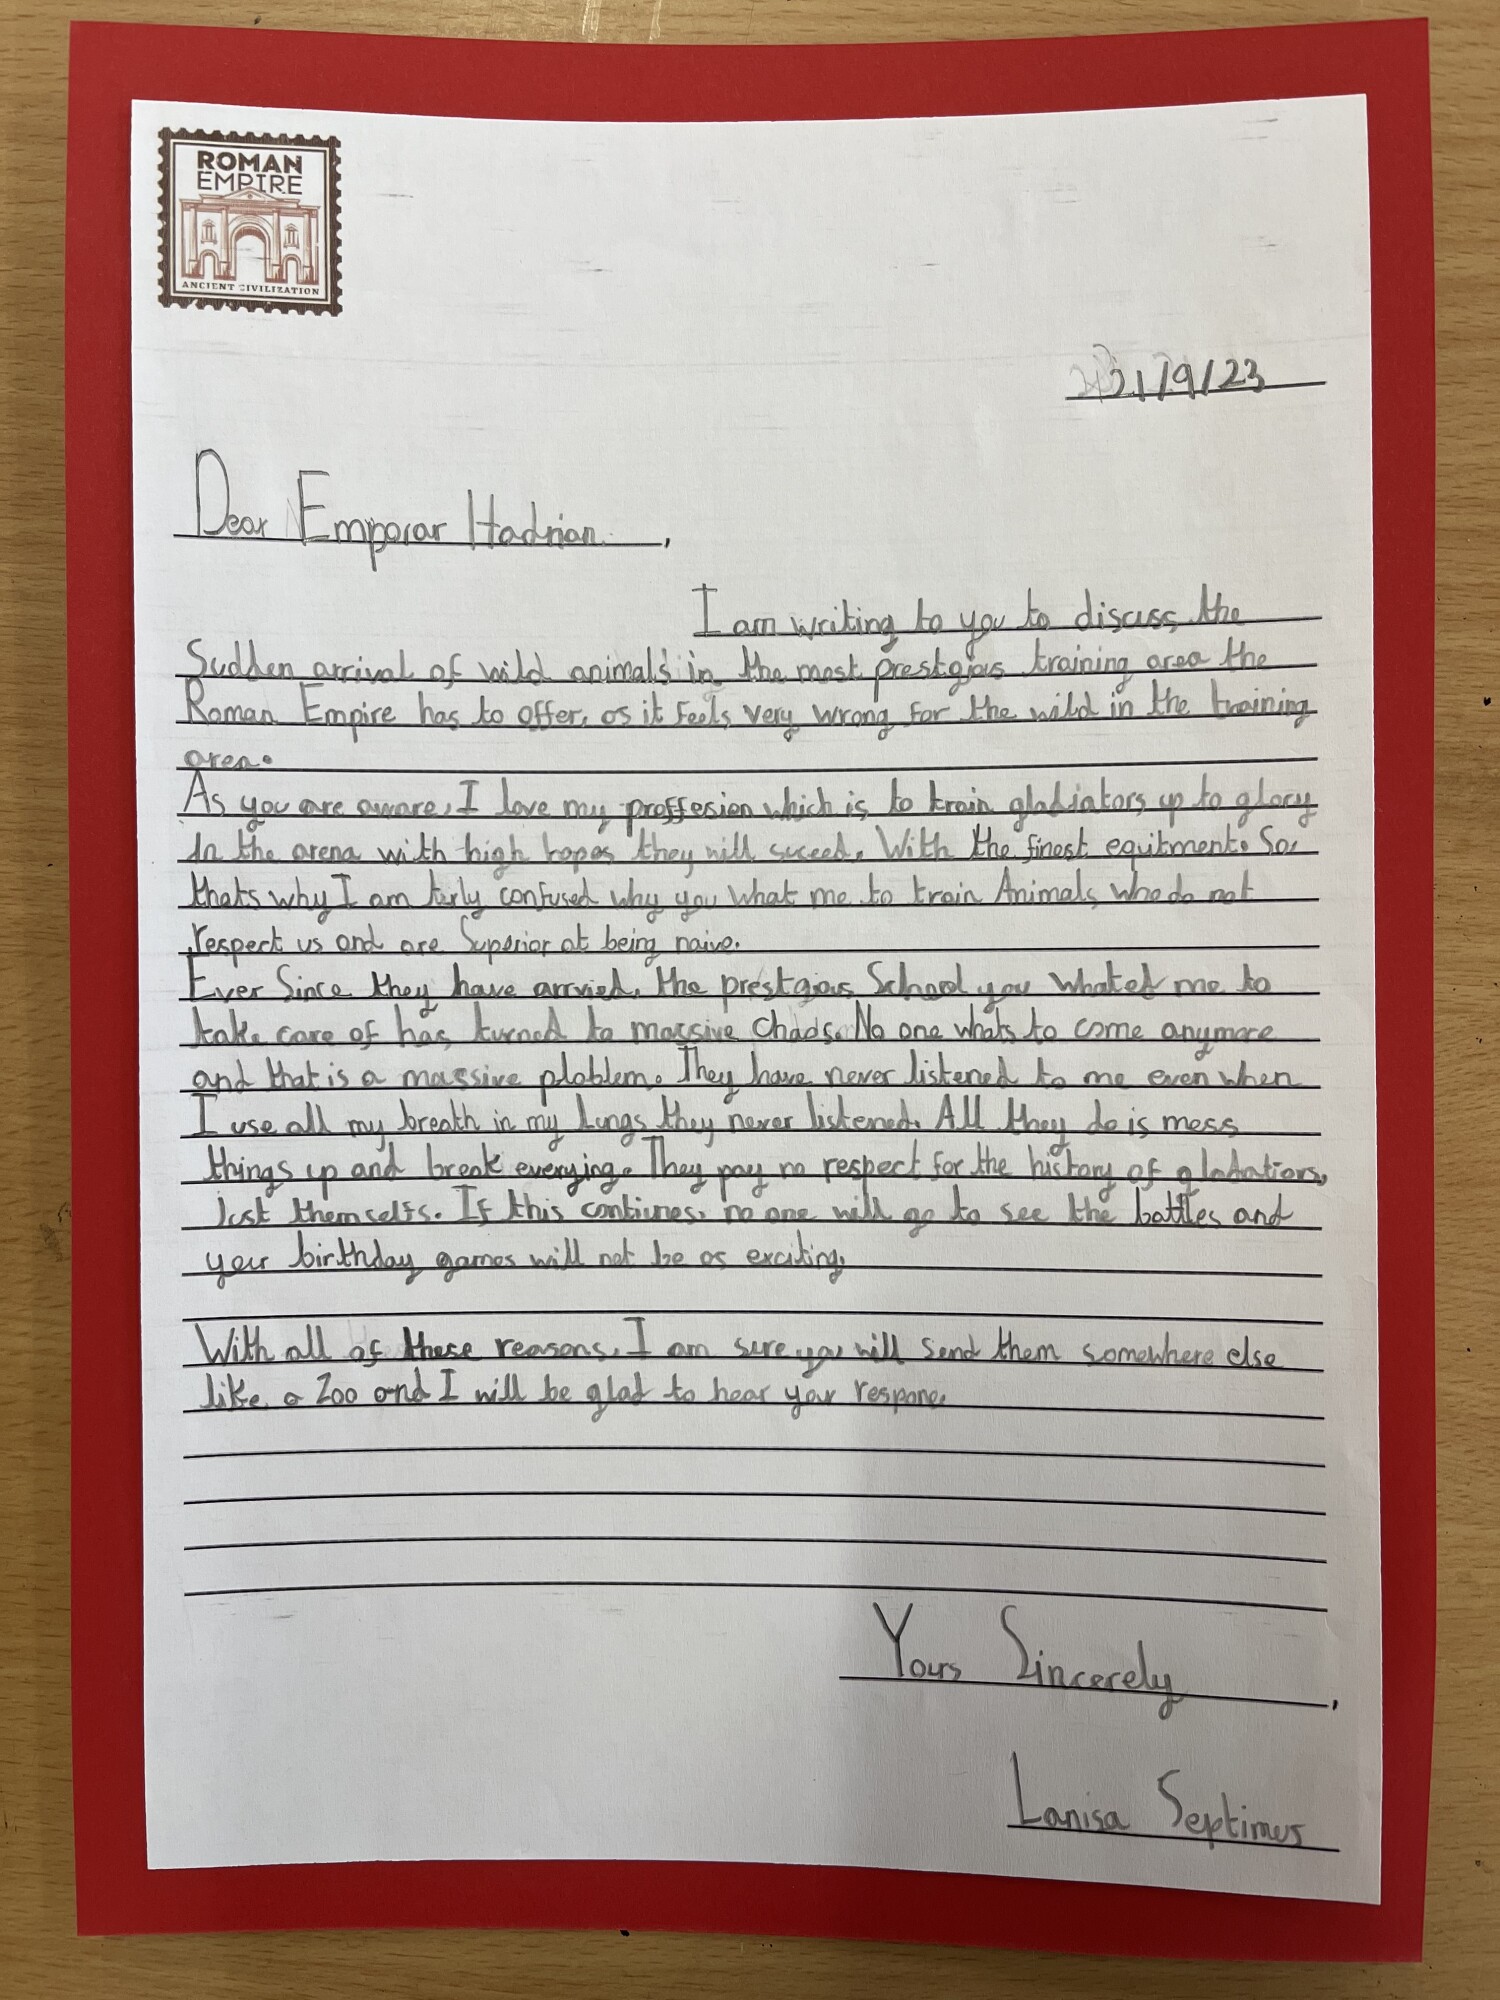 ROMAN
EMPIRE
ANCIENT CIVILIZATION
21/9/23
Dear Emporar Hadrian,
I am writing to you to discuss the
Sudden arrival of wild animals in the most prestgious training area the
Roman Empire has to offer, as it feels very wrong for the wild in the training
area.
As you are aware, I love my proffesion which is to train gladiators up to glory
In the arena with high hopes they will suceed. With the finest equitment. So,
thats why I am turly confused why you what me to train Animals who do not
respect us and are Superior at being naive.
Ever Since they have arrvied, the prestgious School you whated me to
take care of has turned to massive chaos. No one whats to come anymore
and that is a massive ploblem. They have never listened to me even when
I use all my breath in my lungs they never listened. All they do is mess
things up and break everying. They pay no respect for the history of gladatiors,
Just themselfs. If this contiunes, no one will go to see the battles and
your birthday games will not be as exciting.
With all of these reasons, I am sure you will send them somewhere else
like a Zoo and I will be glad to hear your respone.
Yours Sincerely,
Lanisa Septimus